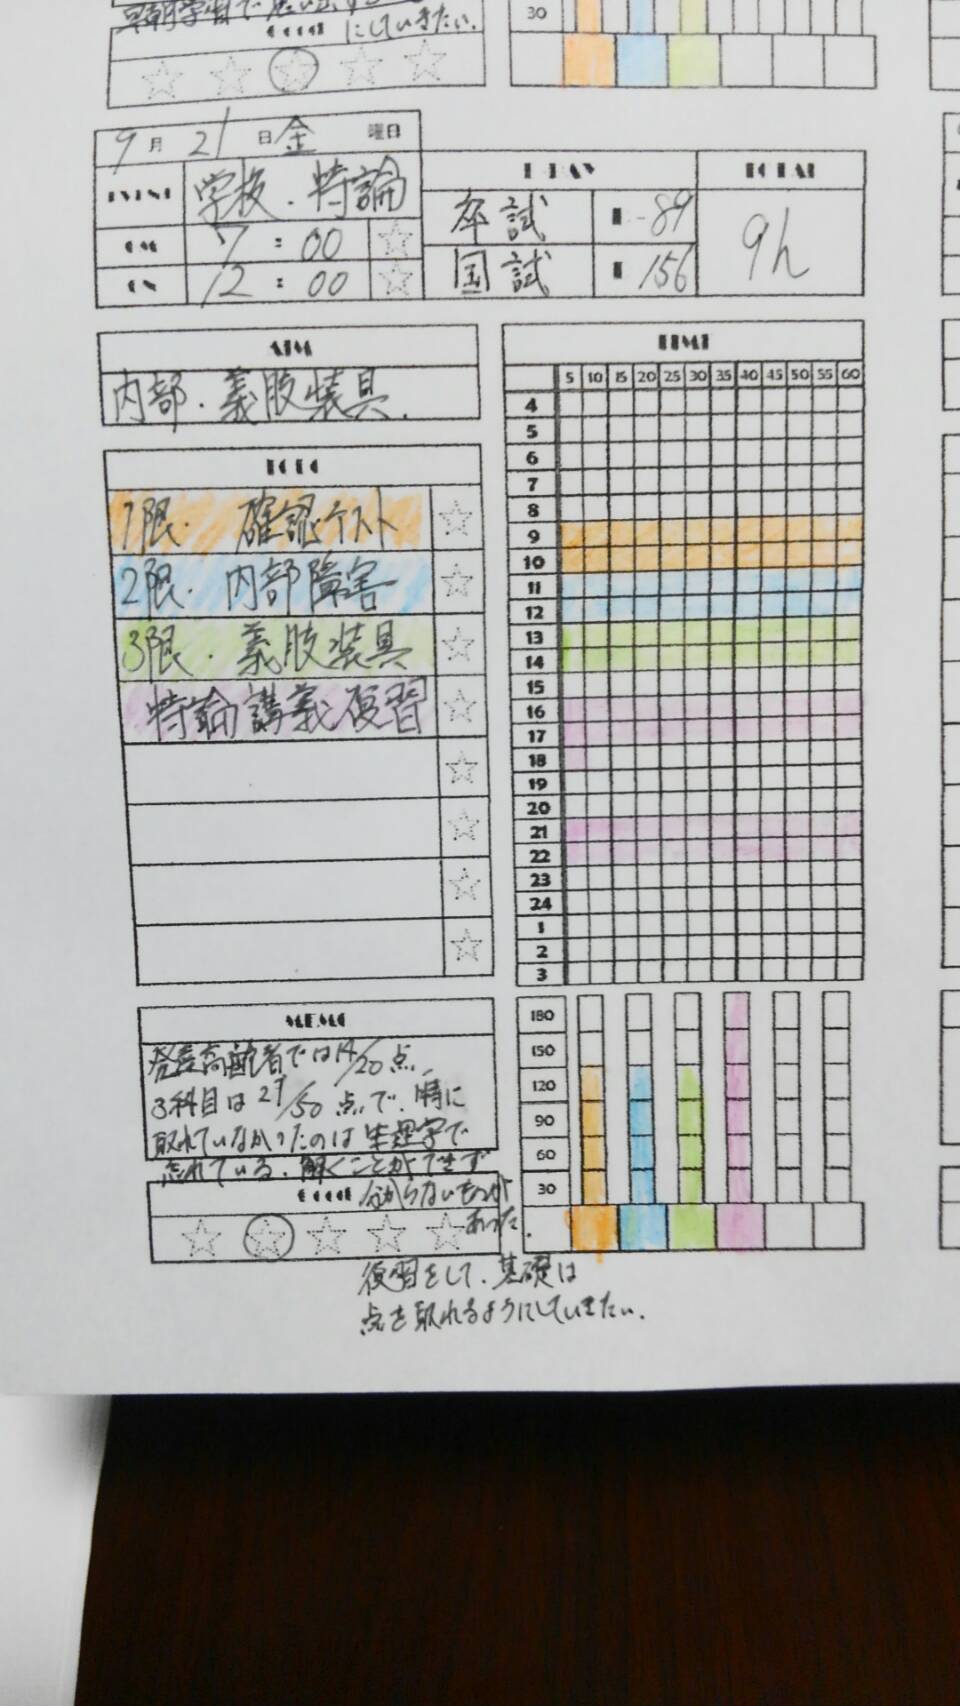 にしていきたい.
30
9月21日金曜日
EVENT 学校.特論
7:00
12:00
D-DAY
TOTAL
卒試 -89
国試 156
9h
AIM
内部.義肢装具.
TIME
5 10 15 20 25 30 35 40 45 50 55 60
4
5
6
7
8
9
10
11
12
13
14
15
16
17
18
19
20
21
22
23
24
1
2
3
1限. 確認テスト
2限. 内部障害
3限. 義肢装具
特論講義復習
MEMO
高齢者では14/20点,
3科目は27/50点で.特に
取れていなかったのは生理学で
忘れている.解くことができず
分からないものが
あった.
復習をして.基礎は
点を取れるようにしていきたい.
180
150
120
90
60
30